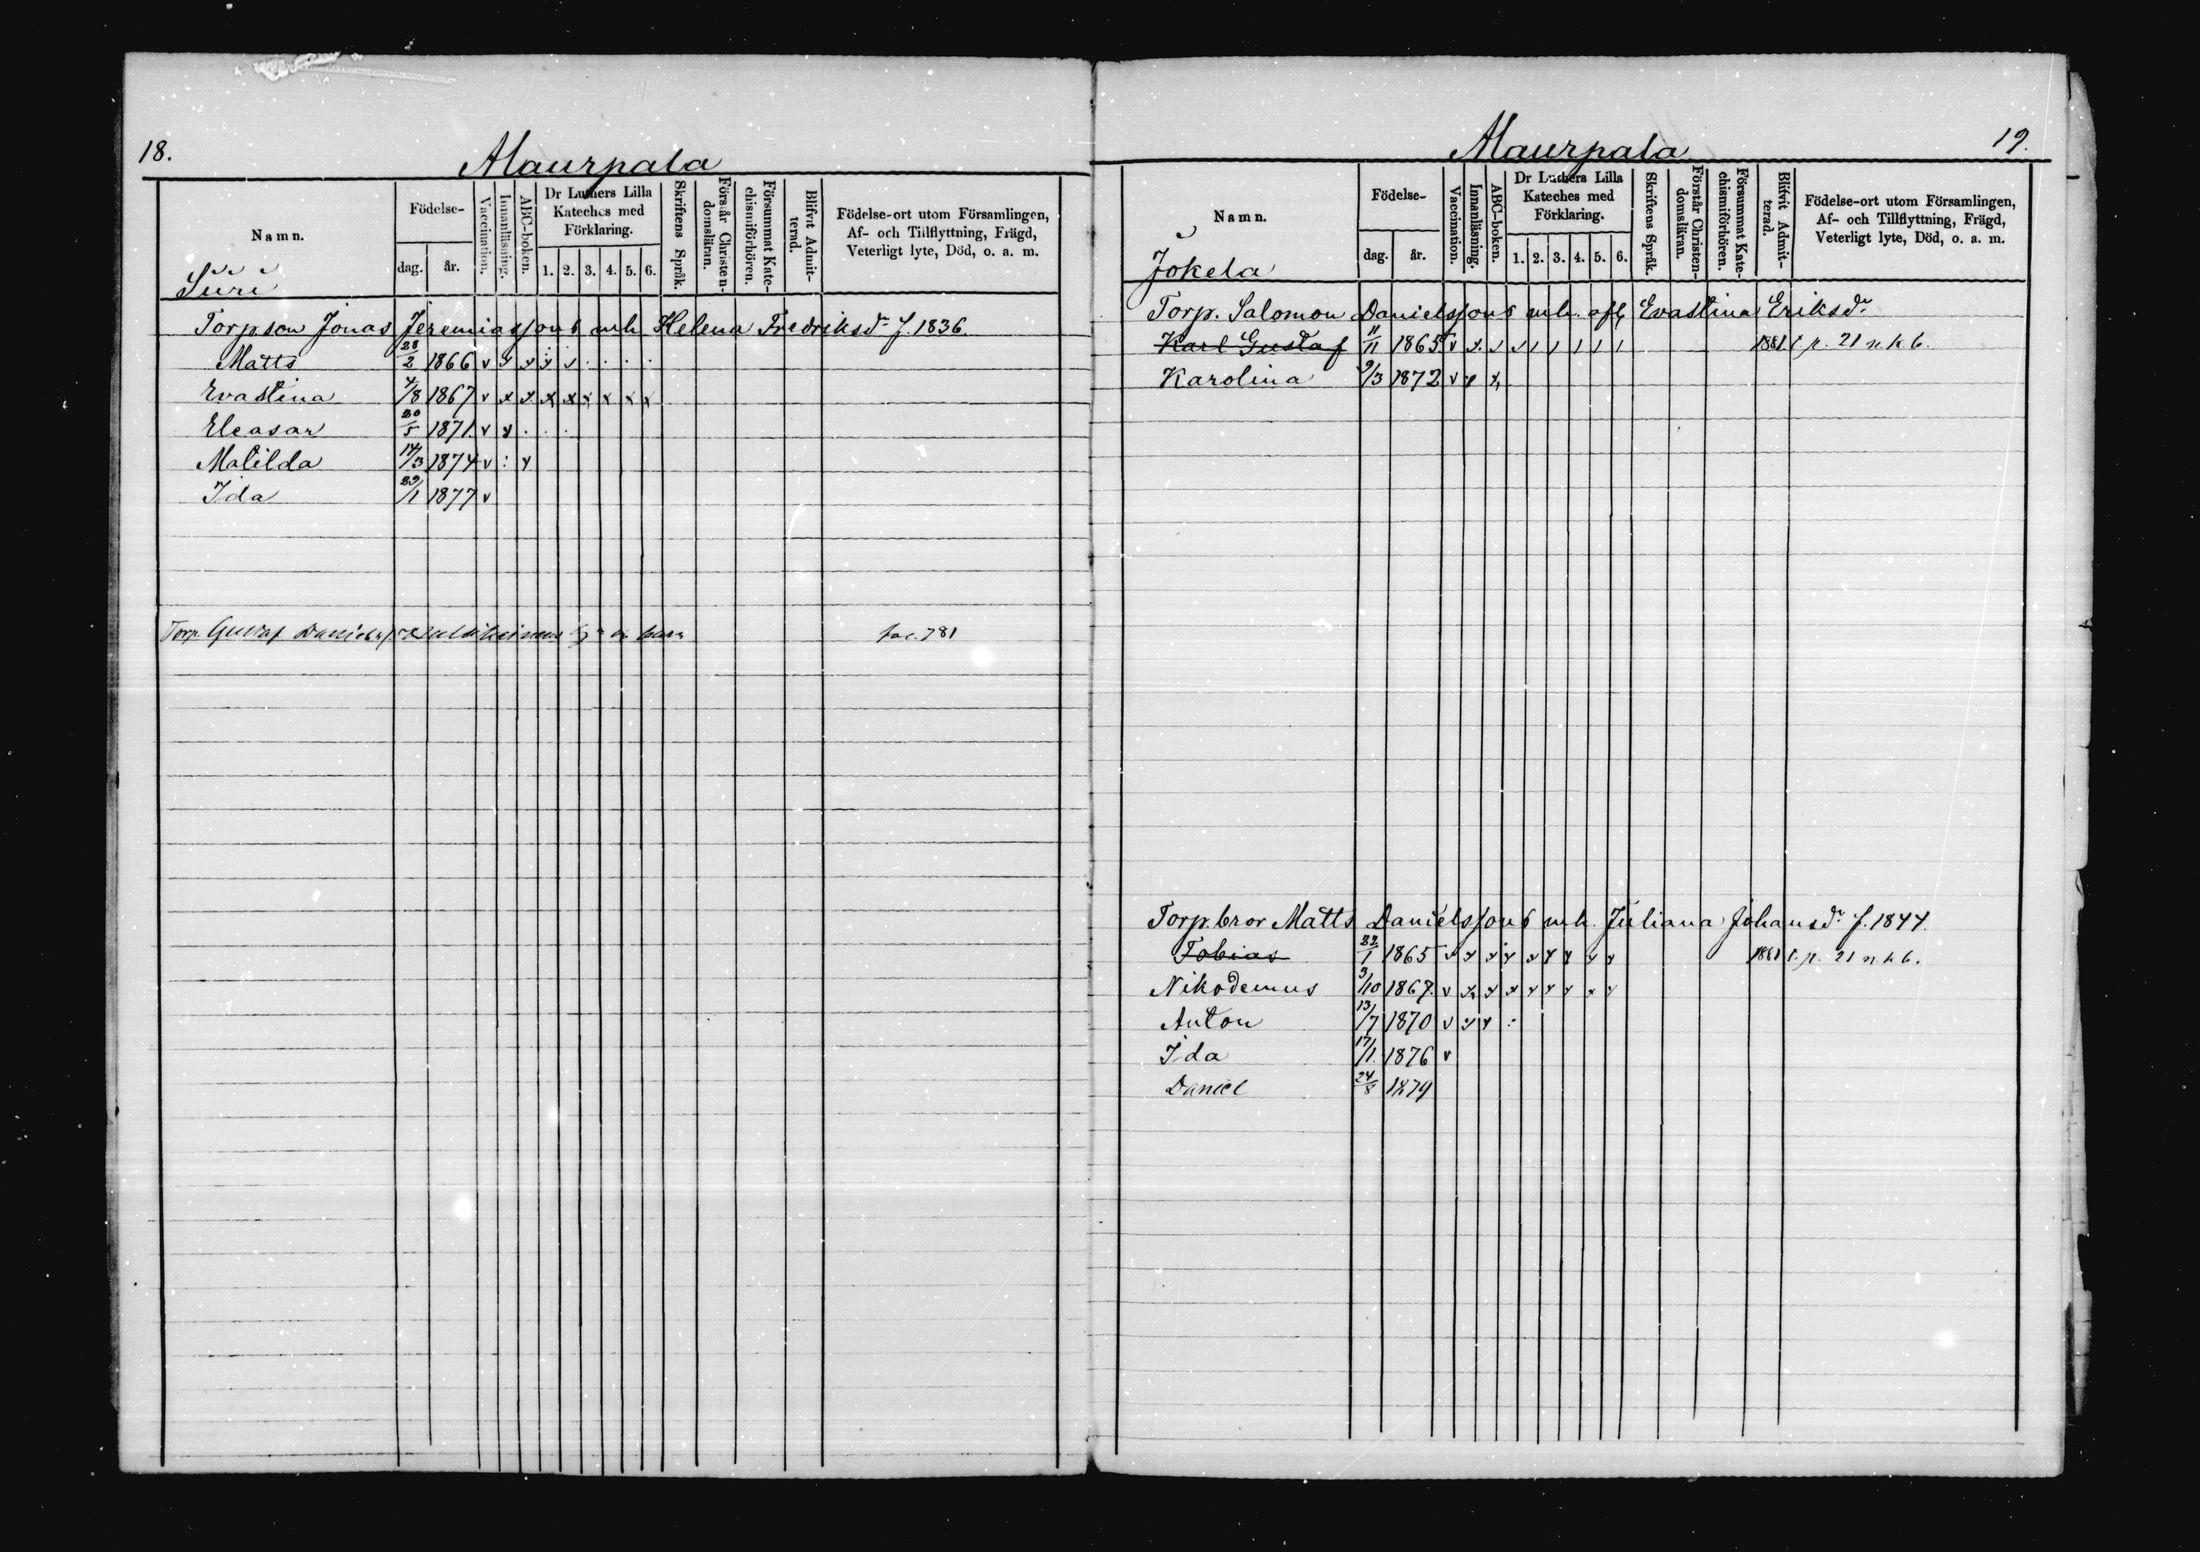 18.
Maurpala
Namn.
Födelse-
dag.
år.
Vaccination.
Innanläsning.
ABC-boken.
Dr Luthers Lilla
Kateches med
Förklaring.
1. 2. 3. 4. 5. 6.
Skriftens Språk.
Förstår Christen-
domsläran.
Försummat Kate-
chismiförhören.
Blifvit Admit-
terad.
Födelse-ort utom Församlingen,
Af- och Tillflyttning, Frägd,
Veterligt lyte, Död, o. a. m.
Torpson Jonas Jeremiassons enk. Helena Fredriksdr f. 1836.
Matts 28/2 1866 v
Evastina 4/8 1867 v
Eleasar 20/5 1871 v
Matilda 14/3 1874 v
Ida 29/1 1877 v
Torp. Gustaf barn
19.
Maurpala
Namn.
Födelse-
dag.
år.
Vaccination.
Innanläsning.
ABC-boken.
Dr Luthers Lilla
Kateches med
Förklaring.
1. 2. 3. 4. 5. 6.
Skriftens Språk.
Förstår Christen-
domsläran.
Försummat Kate-
chismiförhören.
Blifvit Admit-
terad.
Födelse-ort utom Församlingen,
Af- och Tillflyttning, Frägd,
Veterligt lyte, Död, o. a. m.
Jokela
Torp. Salomon Danielssons enk. afl. Evastina Eriksdr
Karl Gustaf 11/11 1865 v 1881 p. 21 n. k. b.
Karolina 9/3 1872 v
Torp. bror Matts Danielssons enk. Juliana Johansdr f. 1844.
Tobias 22/1 1865 1881 p. 21 n. k. b.
Nikodemus 3/10 1867. v
Anton 13/7 1870 v
Ida 17/1 1876 v
Daniel 24/8 1879